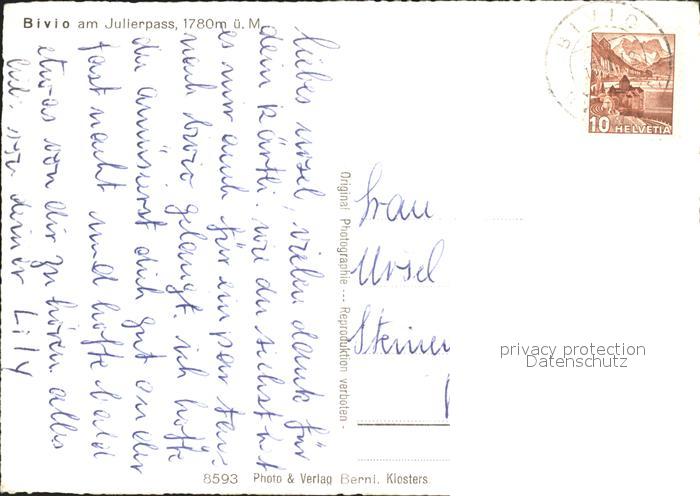 Bivio am Julierpass, 1780m ü. M.
liebes ursel, vielen dank für
dein kärtli. wie du siehst hat
es mir auch für ein par tag
nach bivio gelangt. ich hoffe
du amüsierst dich gut an der
fastnacht und hoffe bald
etwas von dir zu hören. alles
deiner Lily
Original Photographie --- Reproduktion verboten -
BIVIO
10 HELVETIA
Frau
Ursel
Steiner
privacy protection
Datenschutz
8593 Photo & Verlag Berni, Klosters